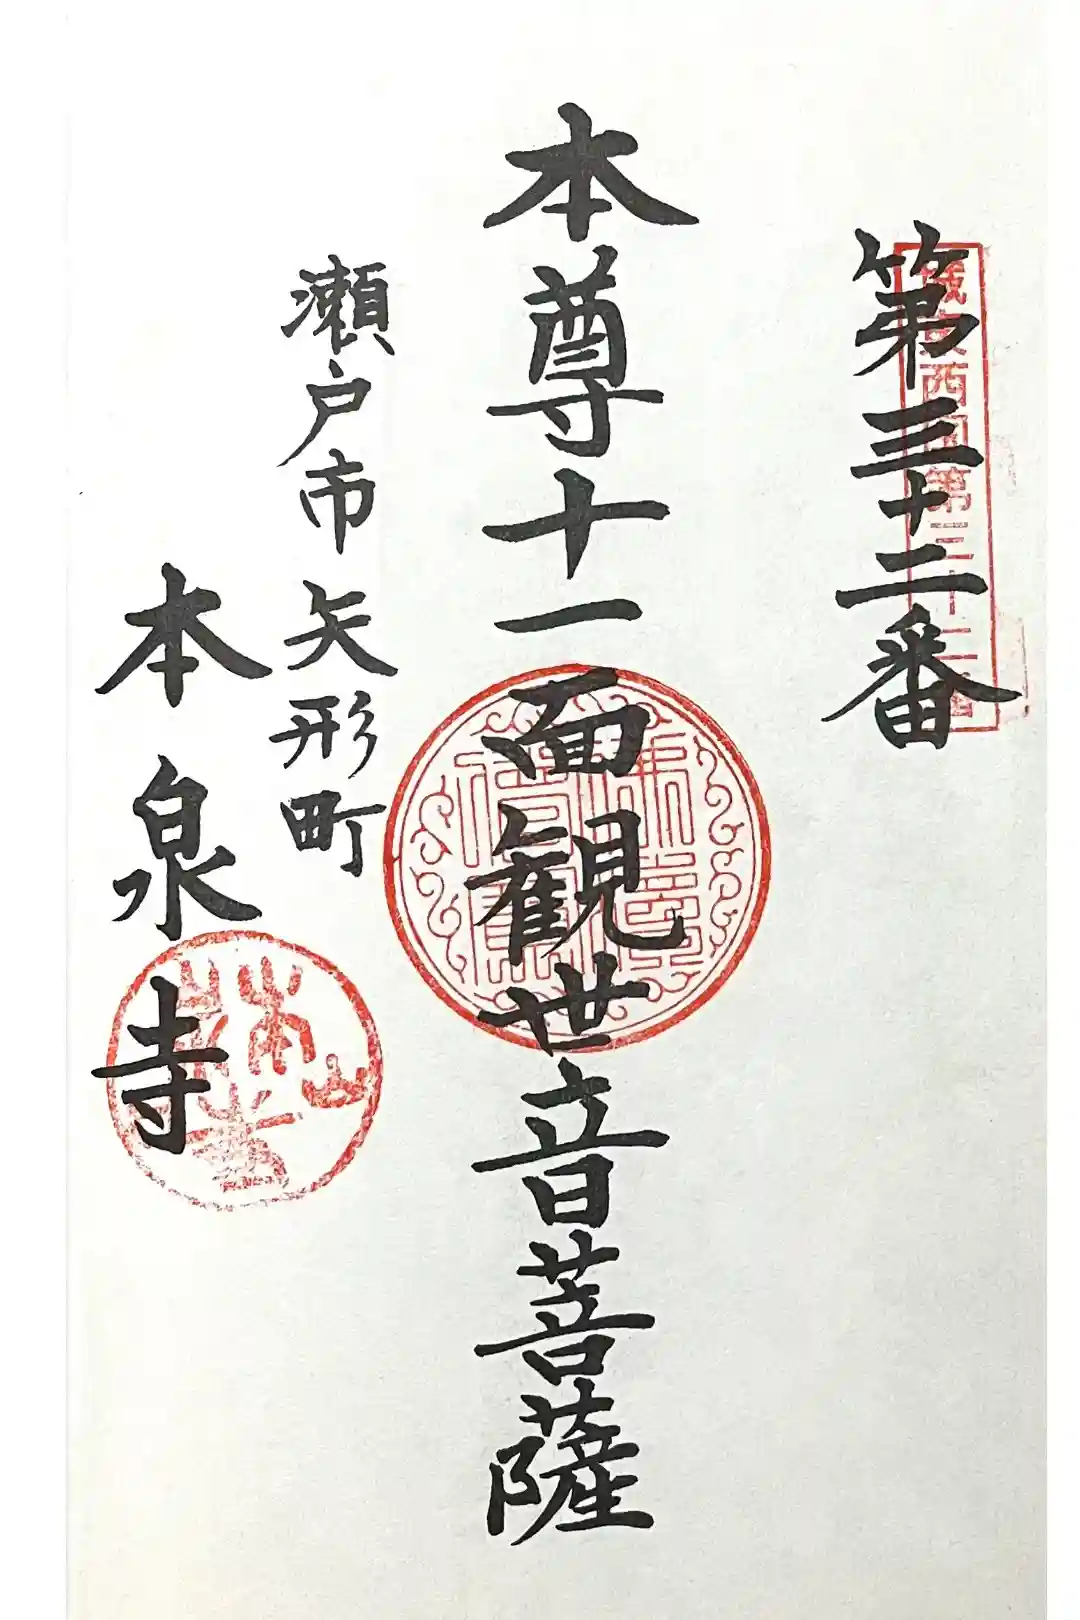 第三十二番
城東西国第三十二番
本尊十一面観世音菩薩
瀬戸市矢形町
本泉寺